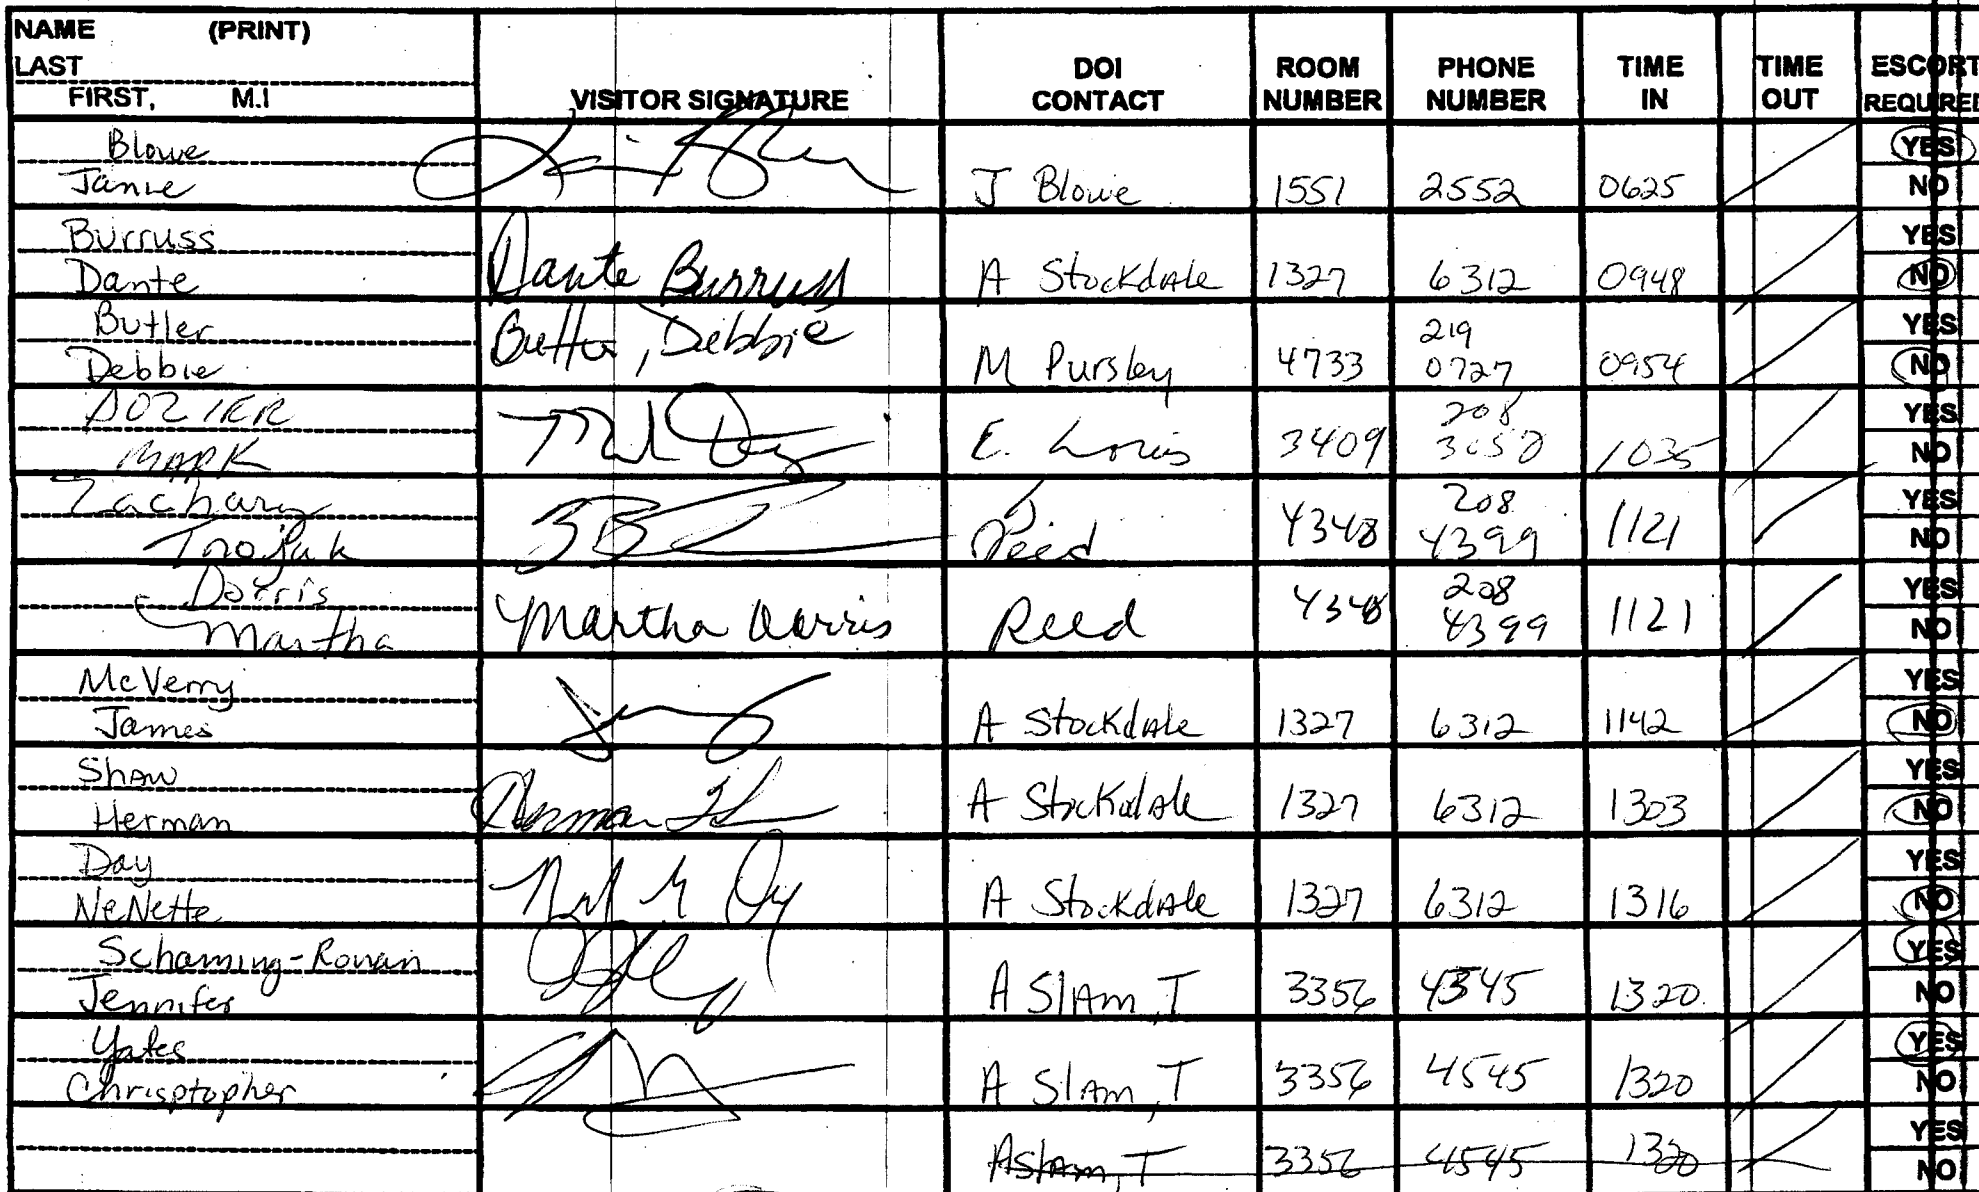 NAME (PRINT)
LAST
FIRST, M.I
VISITOR SIGNATURE
DOI CONTACT
ROOM NUMBER
PHONE NUMBER
TIME IN
TIME OUT
ESCORT REQUIRED
Blowe
Janie
J Blowe 1551 2552 0625
YES
NO
Burruss
Dante
Dante Burruss
A Stockdale 1327 6312 0948
YES
NO
Butler
Debbie
Butler, Debbie
M Pursley 4733 219 0727 0954
YES
NO
DOZIER
MARK
E. 3409 208 1035
YES
NO
Zachary
Trojak
Reed 4348 208 4399 1121
YES
NO
Dorris
Martha
Martha Dorris
Reed 4348 208 4399 1121
YES
NO
McVerry
James
A Stockdale 1327 6312 1142
YES
NO
Shaw
Herman
Herman
A Stockdale 1327 6312 1303
YES
NO
Day
NeNette
A Stockdale 1327 6312 1316
YES
NO
Schaming-Ronan
Jennifer
A Slam, T 3356 4545 1320
YES
NO
Yates
Chrisptopher
A Slam, T 3356 4545 1320
YES
NO
Aslam, T 3356 4545 1320
YES
NO